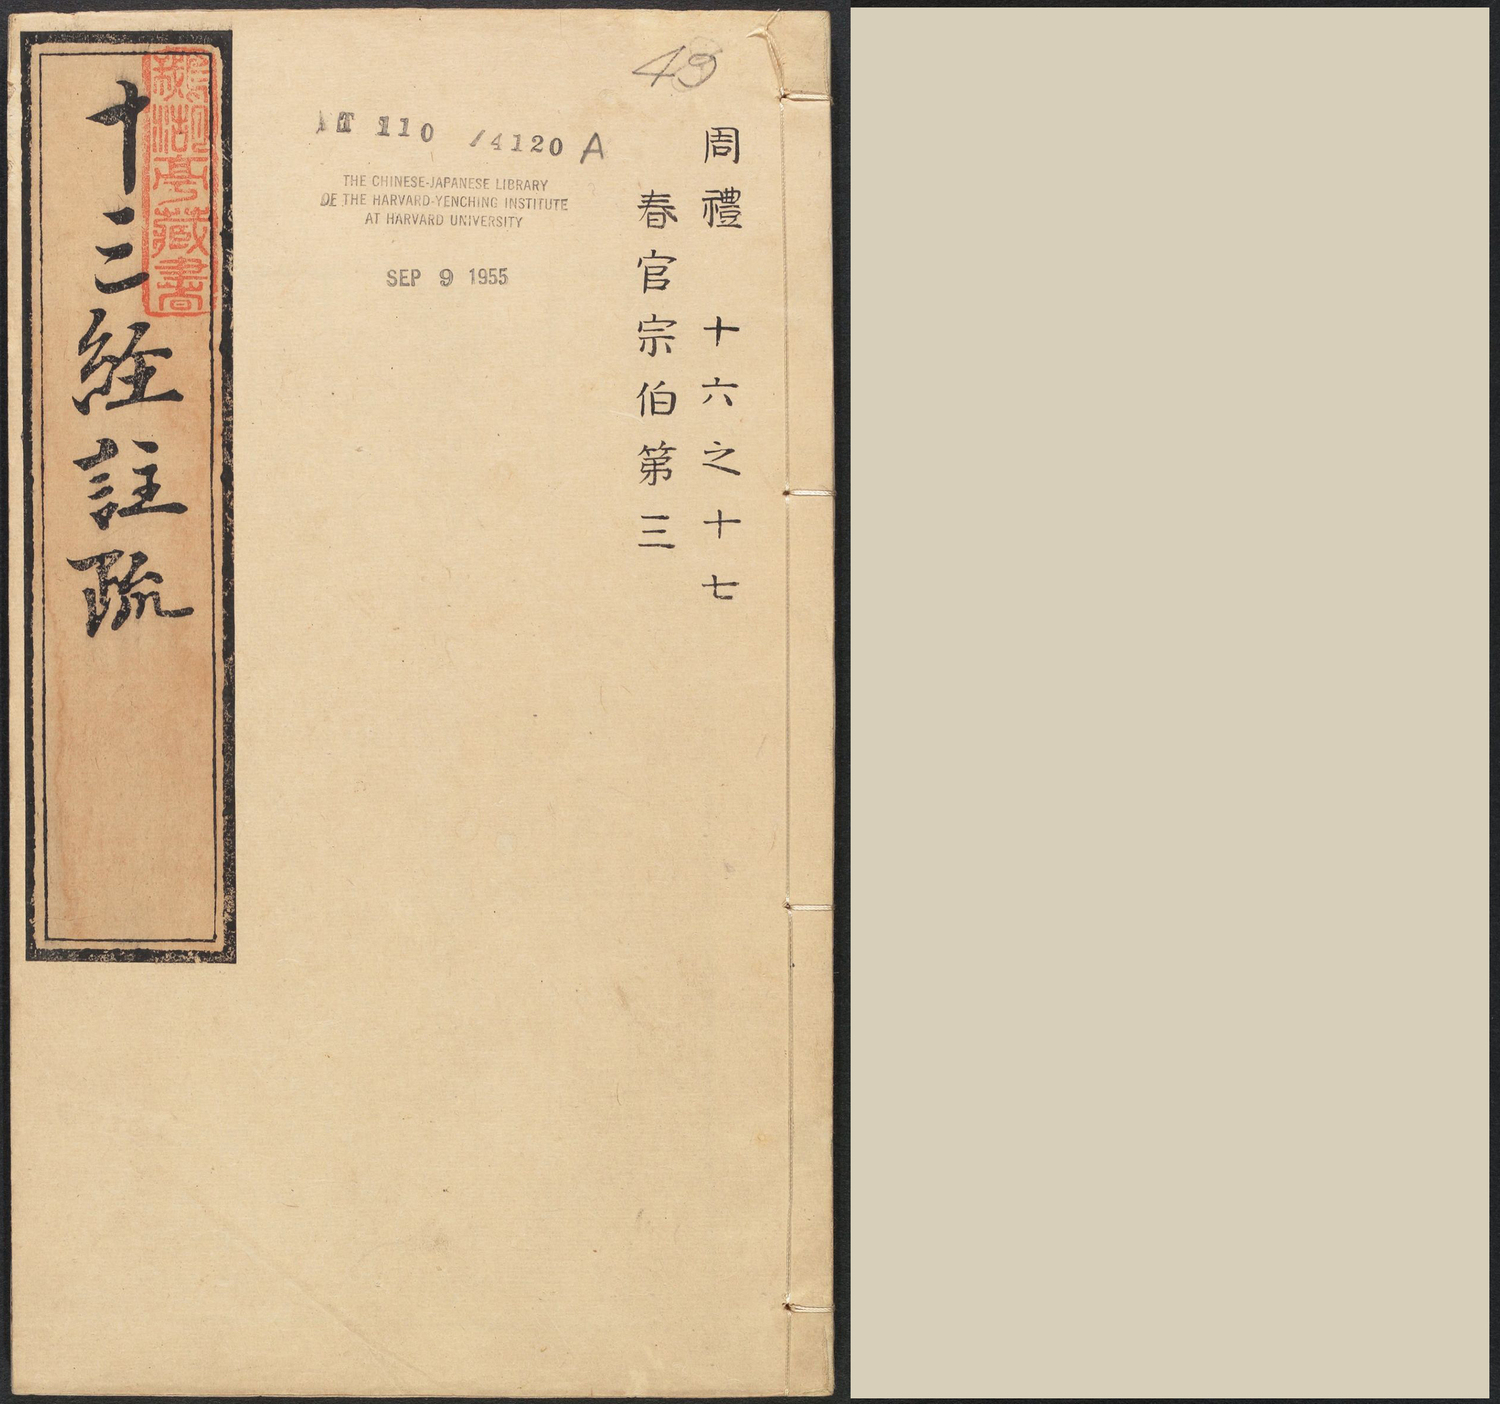 周禮 十六之十七
春官宗伯第三
49
T 110 /4120 A
THE CHINESE-JAPANESE LIBRARY
OF THE HARVARD-YENCHING INSTITUTE
AT HARVARD UNIVERSITY
SEP 9 1955
十三経註疏
鵞湖亭藏書